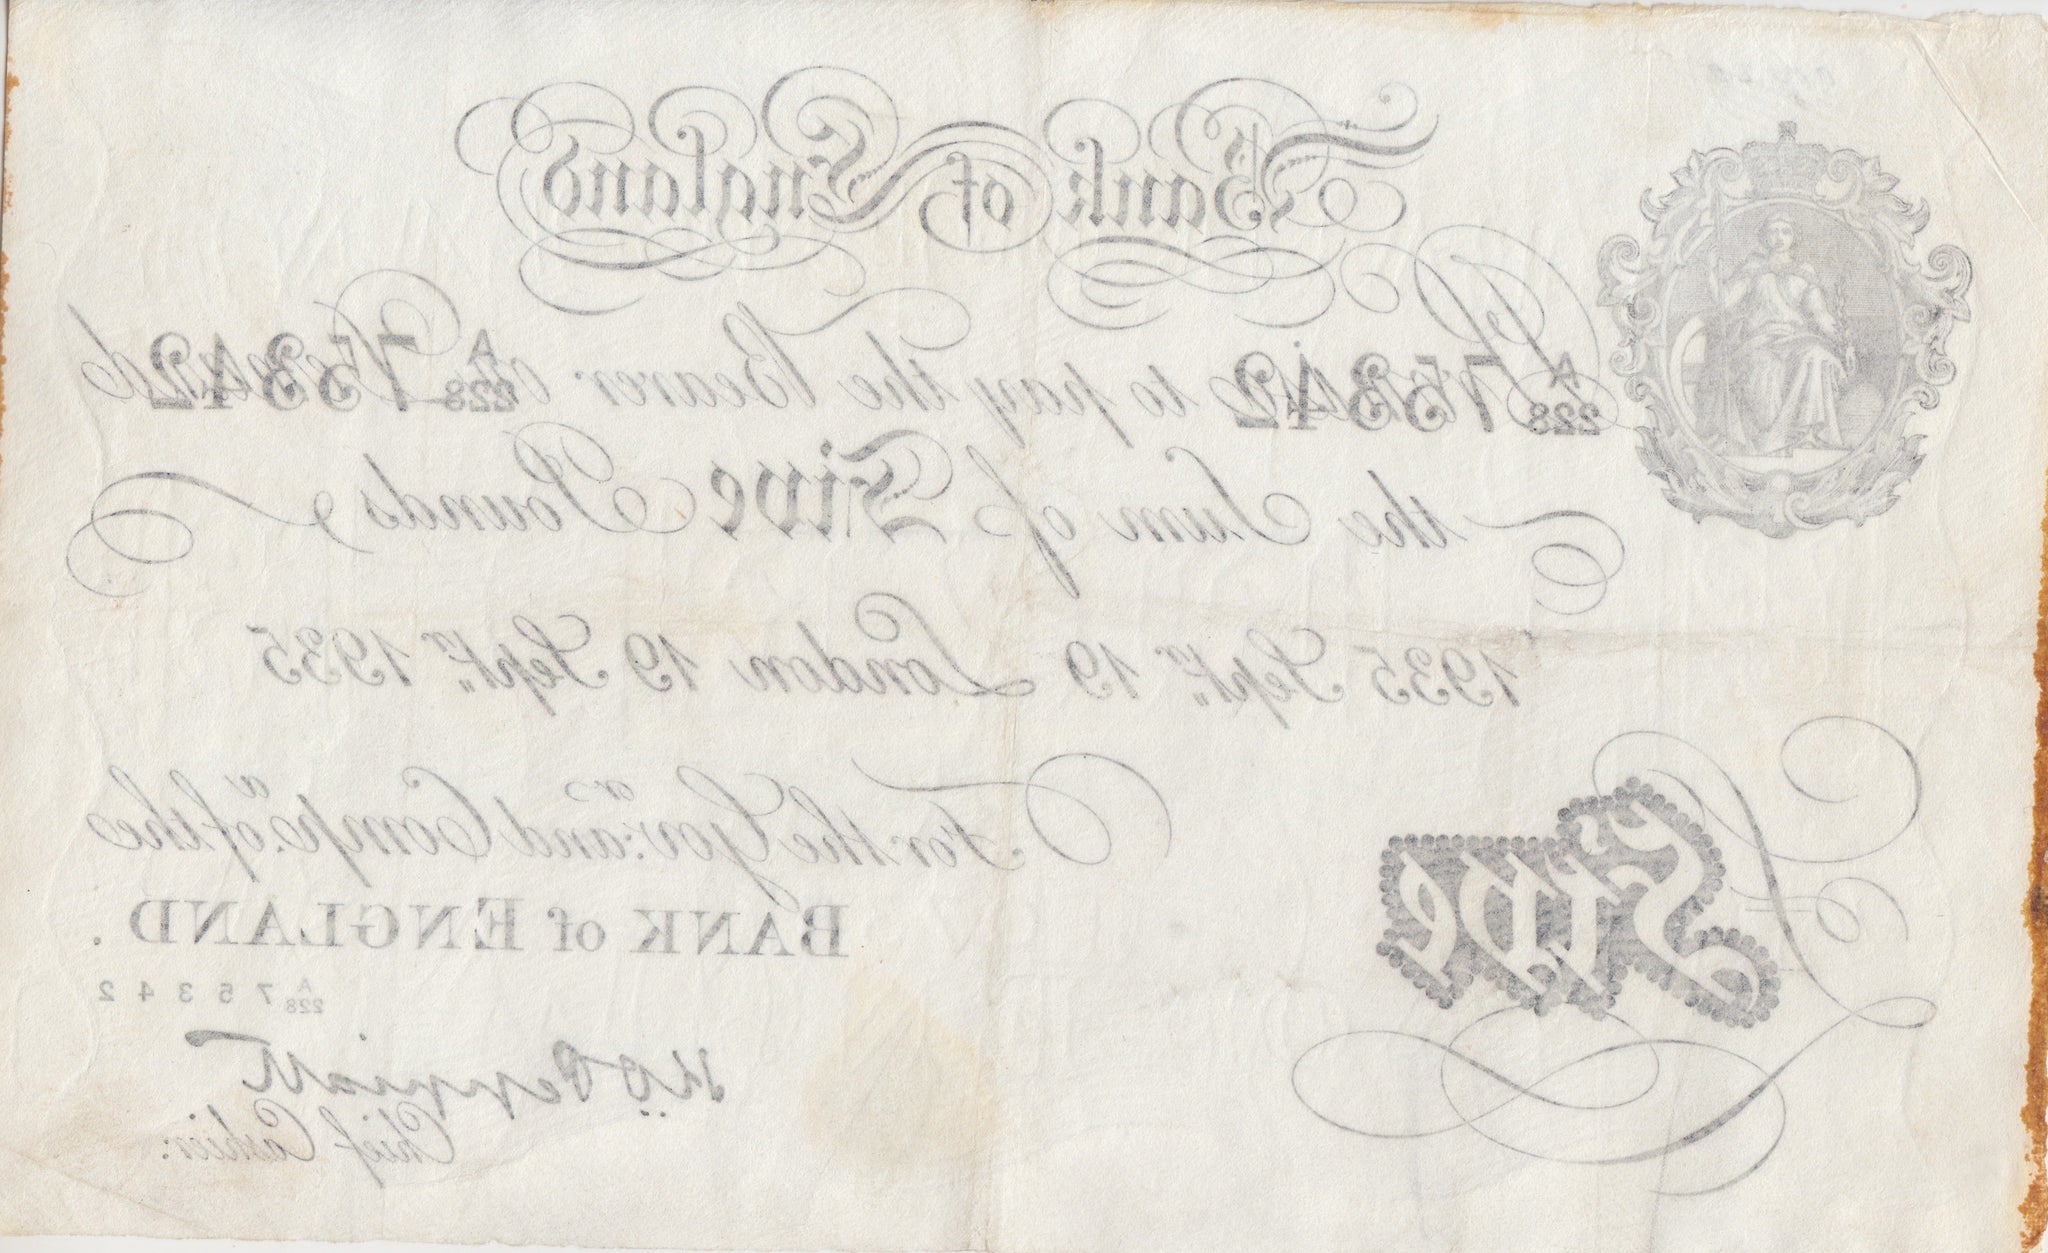 Bank of England
A/228 75342 A/228 75342
I Promise to pay the Bearer on Demand
the Sum of Five Pounds
1935 Septr. 19 London 19 Septr. 1935
For the Govr. and Compa. of the
BANK of ENGLAND.
A/228 75342
K O Peppiatt
Chief Cashier.
£ Five